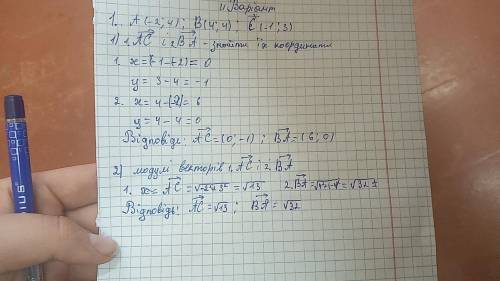 II Варіант
1. A(-2; 4); B(4; 4); C(-1; 3)
1) 1. AC і 2. BA - знайти їх координати
1. x = (-1-(-2)) = 0
y = 3-4 = -1
2. x = 4-(-2) = 6
y = 4-4 = 0
Відповідь: AC = (0; -1); BA = (6; 0)
2) модулі векторів 1. AC і 2. BA
1. AC = = √13 2. BA = = √32
Відповідь: AC = √13; BA = √32
SNIU